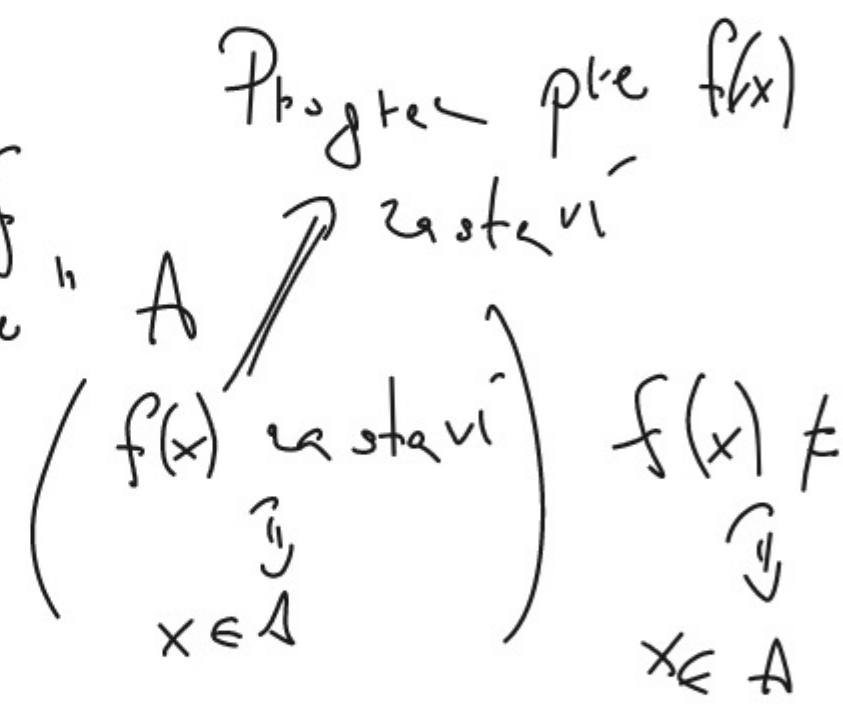 Program pre f(x)
zastaví
" A
f(x) zastaví ) f(x) ≠
⇕ ⇕
x ∈ A x ∈ A